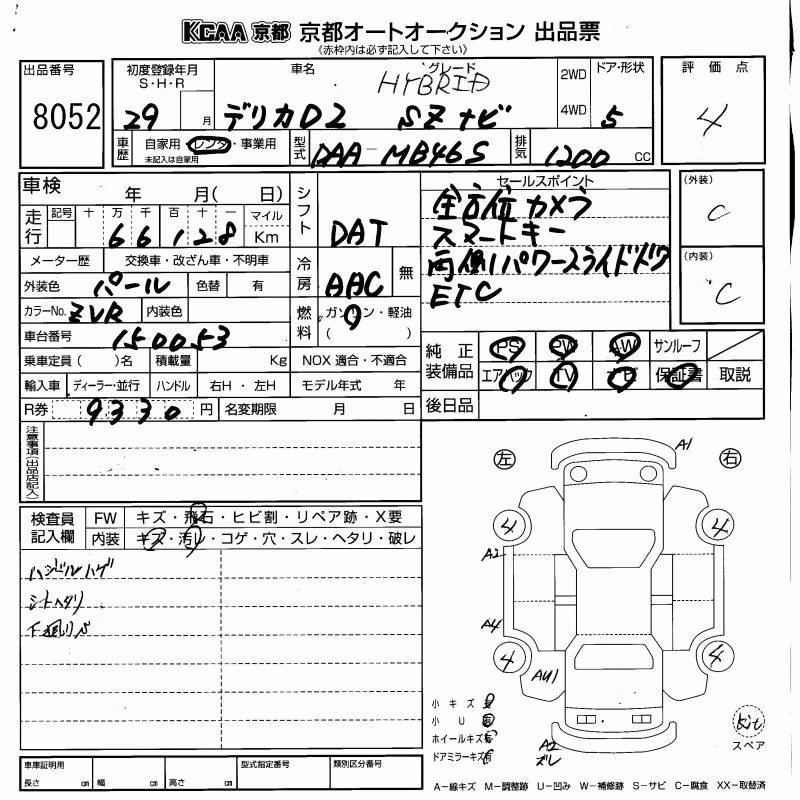 KCAA 京都 京都オートオークション 出品票
《赤枠内は必ず記入して下さい》
出品番号
8052
初度登録年月
S・H・R
29 月
車名
グレード
HYBRID
デリカD2 SZナビ
2WD
4WD
ドア・形状
5
評価点
4
車歴
自家用・レンタ・事業用
未記入は自家用
型式
DAA-MB46S
排気
1200 CC
車検 年 月( 日)
走行
記号 十 万 千 百 十 一 マイル
66128 Km
メーター歴 交換車・改ざん車・不明車
外装色 パール 色替 有
カラーNo. ZVR 内装色
車台番号 150053
乗車定員( )名 積載量 Kg
輸入車 ディーラー・並行 ハンドル 右H・左H
R券 9330 円 名変期限 月 日
シフト
DAT
冷房
AAC 無
燃料
ガソリン・軽油
( )
NOX 適合・不適合
モデル年式 年
セールスポイント
全方位カメラ
スマートキー
両側パワースライドドア
ETC
(外装)
C
(内装)
C
純正装備品
PS PW AW サンルーフ
エアバック TV ナビ 保証書 取説
後日品
注意事項(出品店記入)
検査員記入欄
FW キズ・飛石・ヒビ割・リペア跡・X要
内装 キズ・汚レ・コゲ・穴・スレ・ヘタリ・破レ
ハンドルハゲ
シートヘタリ
左 右
A1
4 4
A2
A4
4 4
AU1
A2
ズレ
小キズ有
小U有
ホイールキズ有
ドアミラーキズ有
kit
スペア
車庫証明用
長さ cm 幅 cm 高さ cm
型式指定番号
類別区分番号
A－線キズ M－調整跡 U－凹み W－補修跡 S－サビ C－腐食 XX－取替済